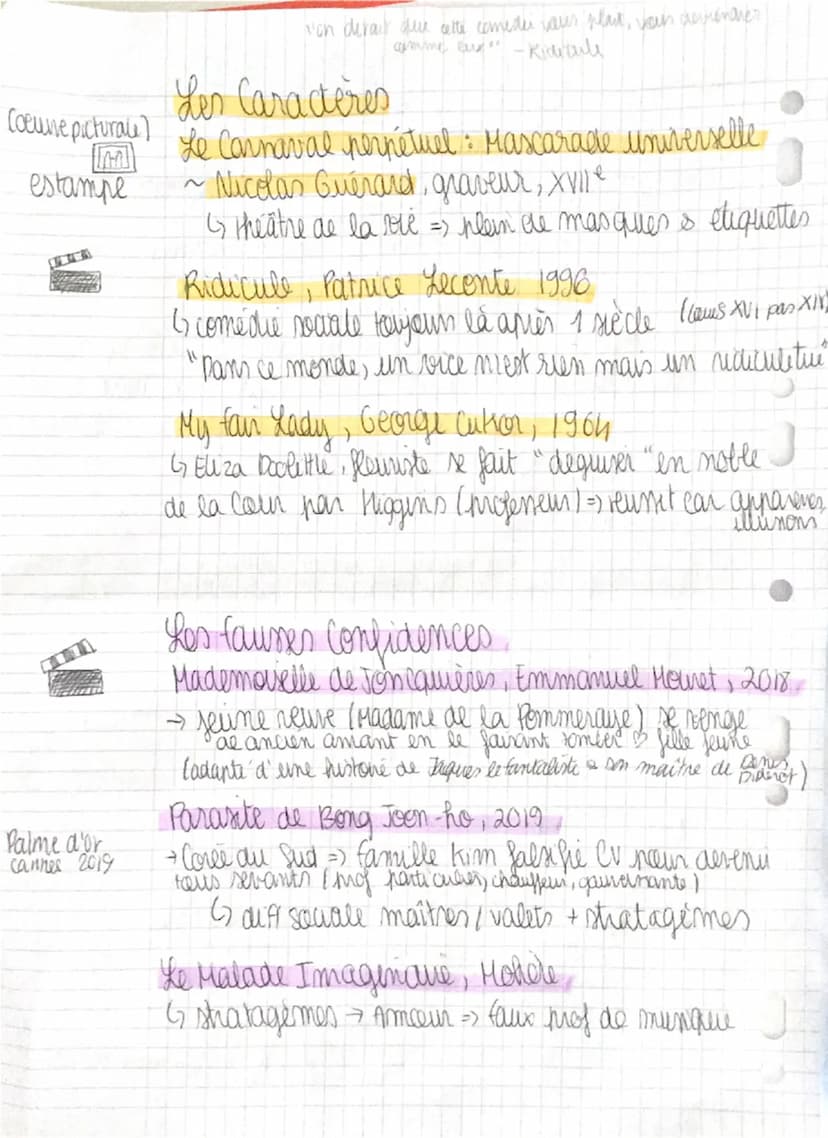 "on dirait que cette comédie vous plaît, vous deviendrez
comme eux" - Ridicule
Les Caractères
(oeuvre picturale)
Le Carnaval perpétuel : Mascarade universelle
estampe
~ Nicolas Guérard, graveur, XVIIe
↳ théâtre de la vie => plein de masques & étiquettes
Ridicule, Patrice Leconte 1996
↳ comédie sociale toujours là après 1 siècle (Louis XVI pas XIV)
"Dans ce monde, un vice n'est rien mais un ridicule tue"
My fair Lady, George Cukor, 1964
↳ Eliza Doolittle, fleuriste se fait "déguiser" en noble
de la Cour par Higgins (professeur) => réussit car apparences,
illusions
Les fausses Confidences
Mademoiselle de Joncquières, Emmanuel Mouret, 2018
→ jeune veuve (Madame de la Pommeraye) se venge
de ancien amant en le faisant tomber ♡ fille jeune
(adapté d'une histoire de Jaques le fantaliste & son maître de Denis
Diderot)
Parasite de Bong Joon-ho, 2019
Palme d'or
cannes 2019
→ Corée du Sud => famille Kim falsifie CV pour devenir
tous servants (prof particulier, chauffeur, gouvernante)
↳ diff sociale maîtres / valets + stratagèmes
Le Malade Imaginaire, Molière
↳ stratagèmes → Amour => faux prof de musique